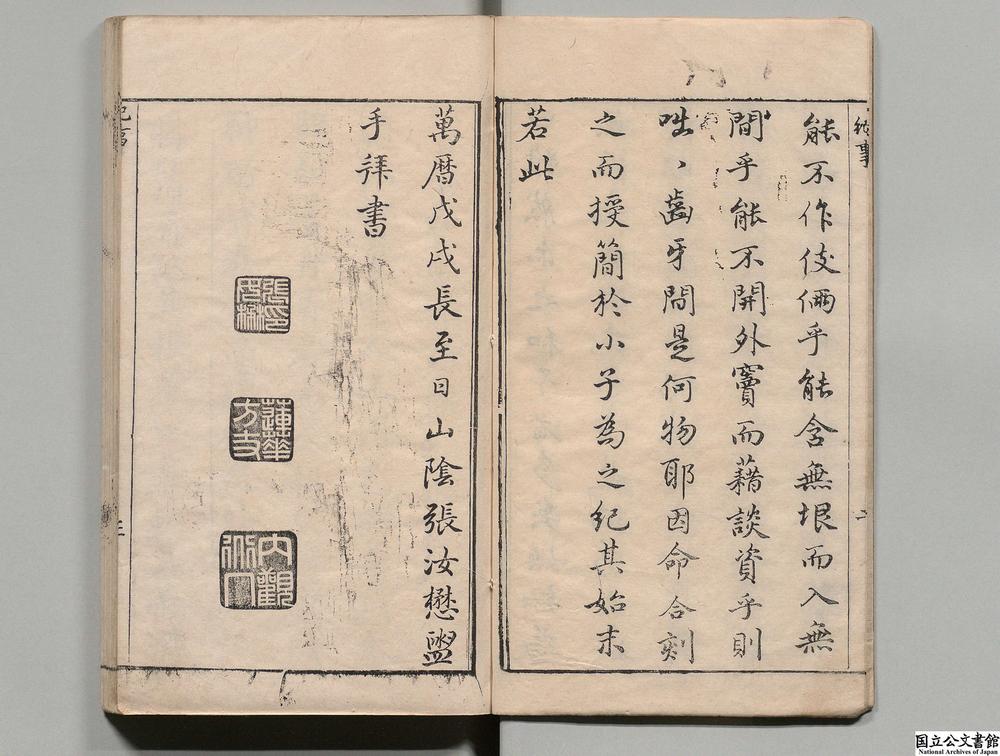 紀事
二
能不作伎倆乎能含無垠而入無
間乎能不開外竇而藉談資乎則
咄、齒牙間是何物耶因命合刻
之而授簡於小子為之紀其始末
若此
萬曆戊戌長至日山陰張汝懋盥
手拜書
蓮華
內觀
紀事
三
国立公文書館
National Archives of Japan